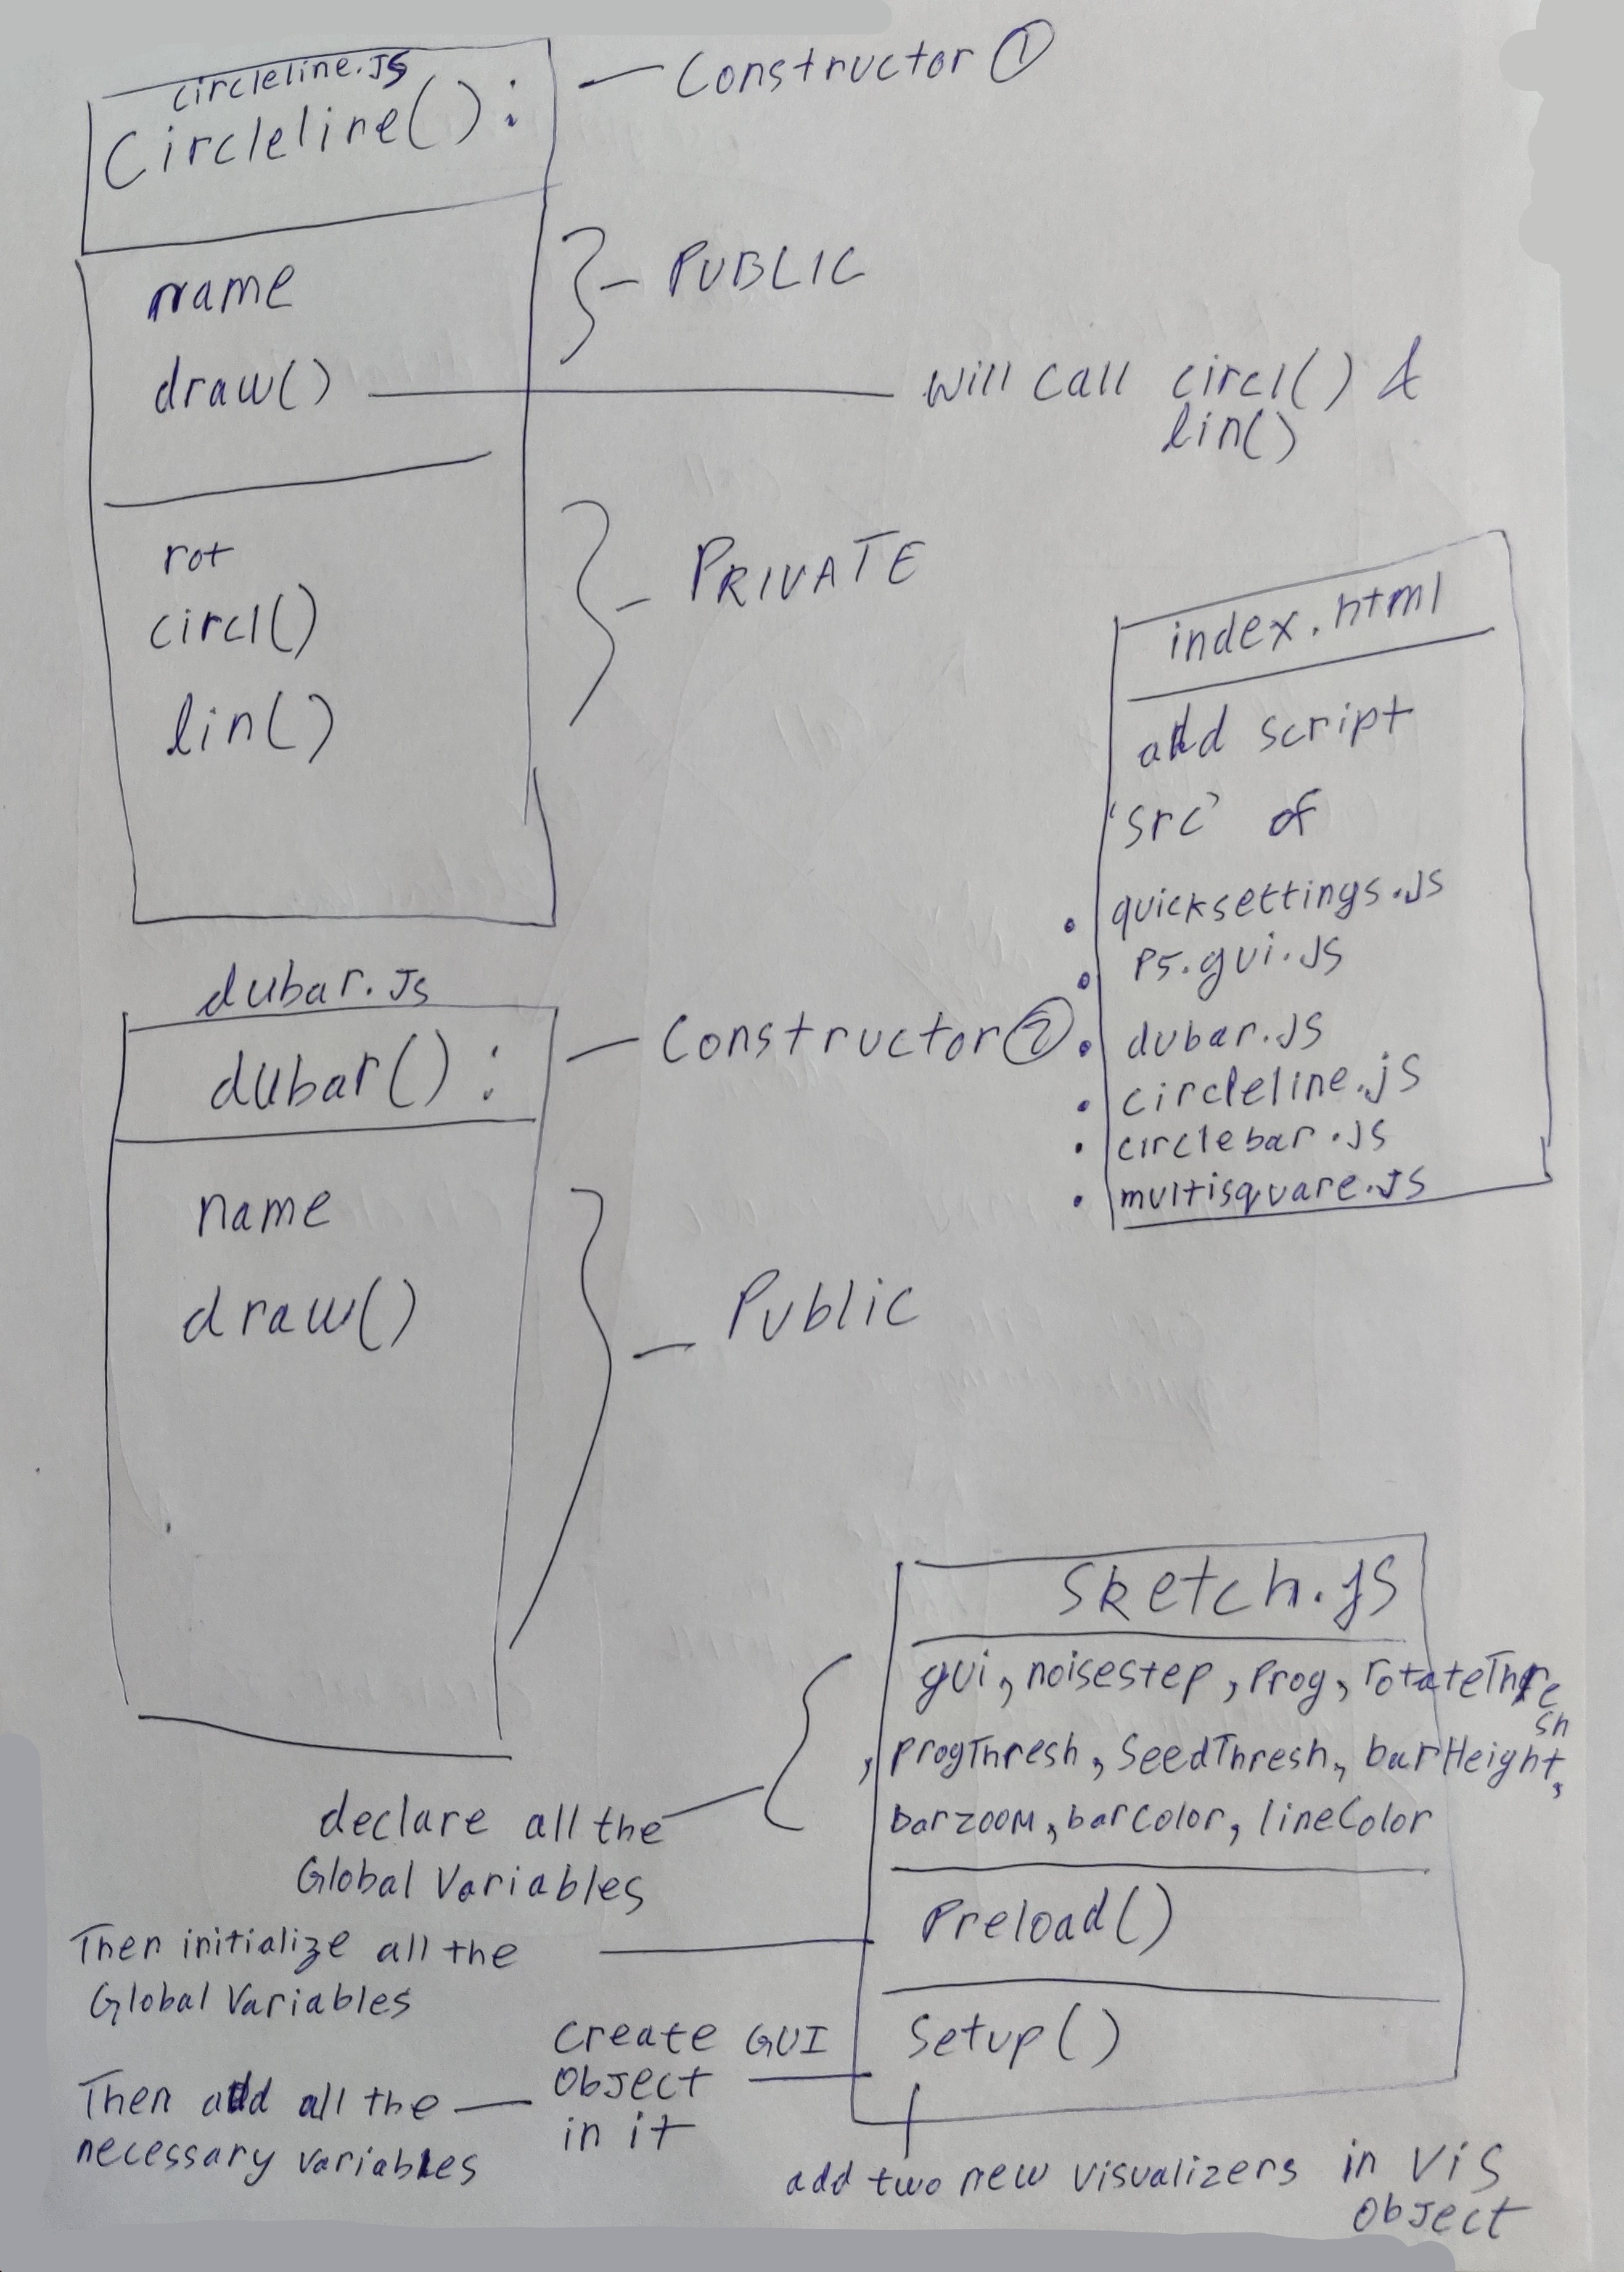 circleline.JS
Circleline():
Constructor ①
name
PUBLIC
draw()
will call circl() &
lin()
rot
circl()
lin()
PRIVATE
index.html
add script
'src' of
• quicksettings.JS
• P5.gui.JS
• dubar.JS
• circleline.js
• circlebar.JS
• multisquare.JS
dubar.Js
dubar():
Constructor ②
name
draw()
Public
Sketch.JS
gui, noisestep, Prog, rotateThre
sh
, ProgThresh, SeedThresh, barHeight,
barzoom, barColor, lineColor
declare all the
Global Variables
Preload()
Then initialize all the
Global Variables
Setup()
Create GUI
Object
in it
Then add all the
necessary variables
add two new visualizers in Vis
Object